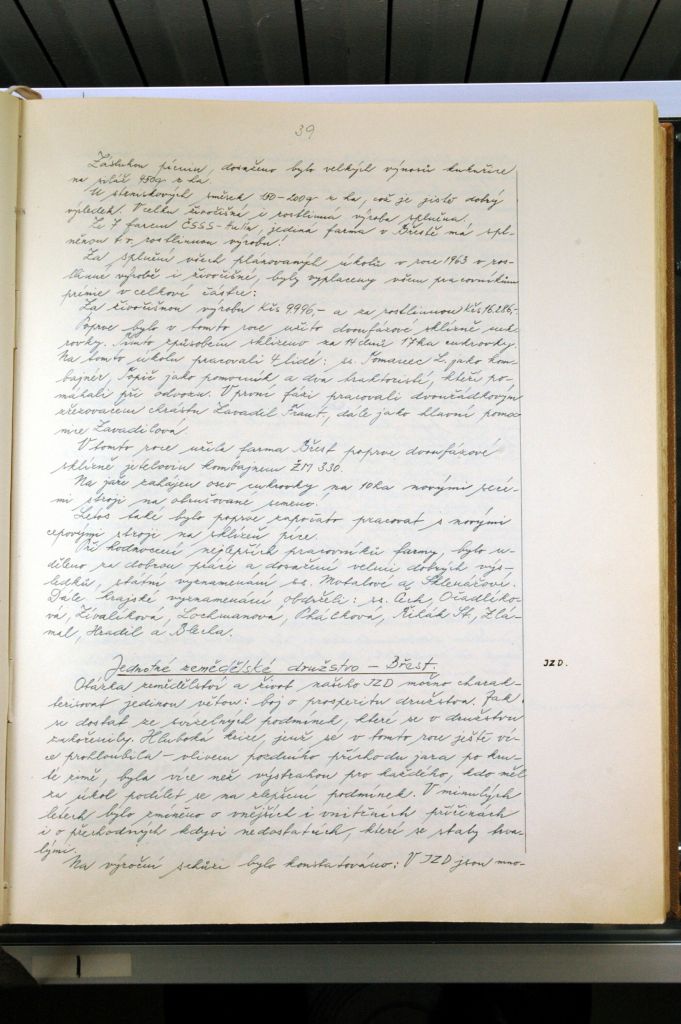 39
Zásluhou párim, dosaženo bylo velkých výnosů kukuřice
na siláž 450q z ha.
U steniskových směsek 180-200q z ha, což je jistě dobrý
výsledek. Vcelku živočišná i rostlinná výroba splněna.
Ze 7 farem ČSSS-Hulín, jediná farma v Břestě má spl-
něnou tov. rostlinnou výrobu!
Za splnění všech plánovaných úkolů v roce 1963 v ros-
tlinné výrobě i živočišné, byly vyplaceny všem pracovníkům
prémie v celkové částce:
Za živočišnou výrobu Kčs 9.996,- a za rostlinnou Kčs 16.286,-
Poprve bylo v tomto roce užito dvoufázové sklizně cuk-
rovky. Tímto způsobem sklizeno za 14 dnů 17ha cukrovky.
Na tomto úkolu pracovali 4 lidé: ss. Pomanec L. jako kom-
bajnér, Popič jako pomocník a dva traktoristé, kteří po-
máhali při odvozu. V první fázi pracovali dvouřádkovým
ořezovacem chrástu Zavadil Frant., dále jako hlavní pomo-
nice Zavadilová.
V tomto roce užila farma Břest poprve dvoufázové
sklizně jetelovin kombajnem ŽM 330.
Na jaře zahájen osev cukrovky na 10ha novými secí-
mi stroji na obrušované semeno!
Letos také bylo poprve započato pracovat s novými
cepovými stroji na sklizeň píce.
Při hodnocení nejlepších pracovníků farmy, bylo u-
děleno za dobrou práci a dosažení velmi dobrých výs-
ledků, státní vyznamenání ss. Motalové a Sklenářové.
Dále krajské vyznamenání obdrželi: ss. Cech, Očadlíko-
vá, Živalíková, Lochmanová, Obalčková, Řihák St., Zlá-
mal, Hradil a Blecha.
Jednotné zemědělské družstvo - Břest.
JZD.
Otázka zemědělství a život našeho JZD možno charak-
terisovat jedinou větou: boj o prosperitu družstva. Jak
se dostat ze svízelných podmínek, které se v družstvu
zakořenily. Hluboká krize, jenž se v tomto roce ještě ví-
ce prohloubila - vlivem pozdního příchodu jara po kru-
té zimě, byla více než výstrahou pro každého, kdo měl
za úkol podílet se na zlepšení podmínek. V minulých
letech bylo zmíněno o vnějších i vnitřních příčinách
i o přechodných kdysi nedostatcích, které se staly trva-
lými.
Na výroční schůzi bylo konstatováno: V JZD jsou mno-